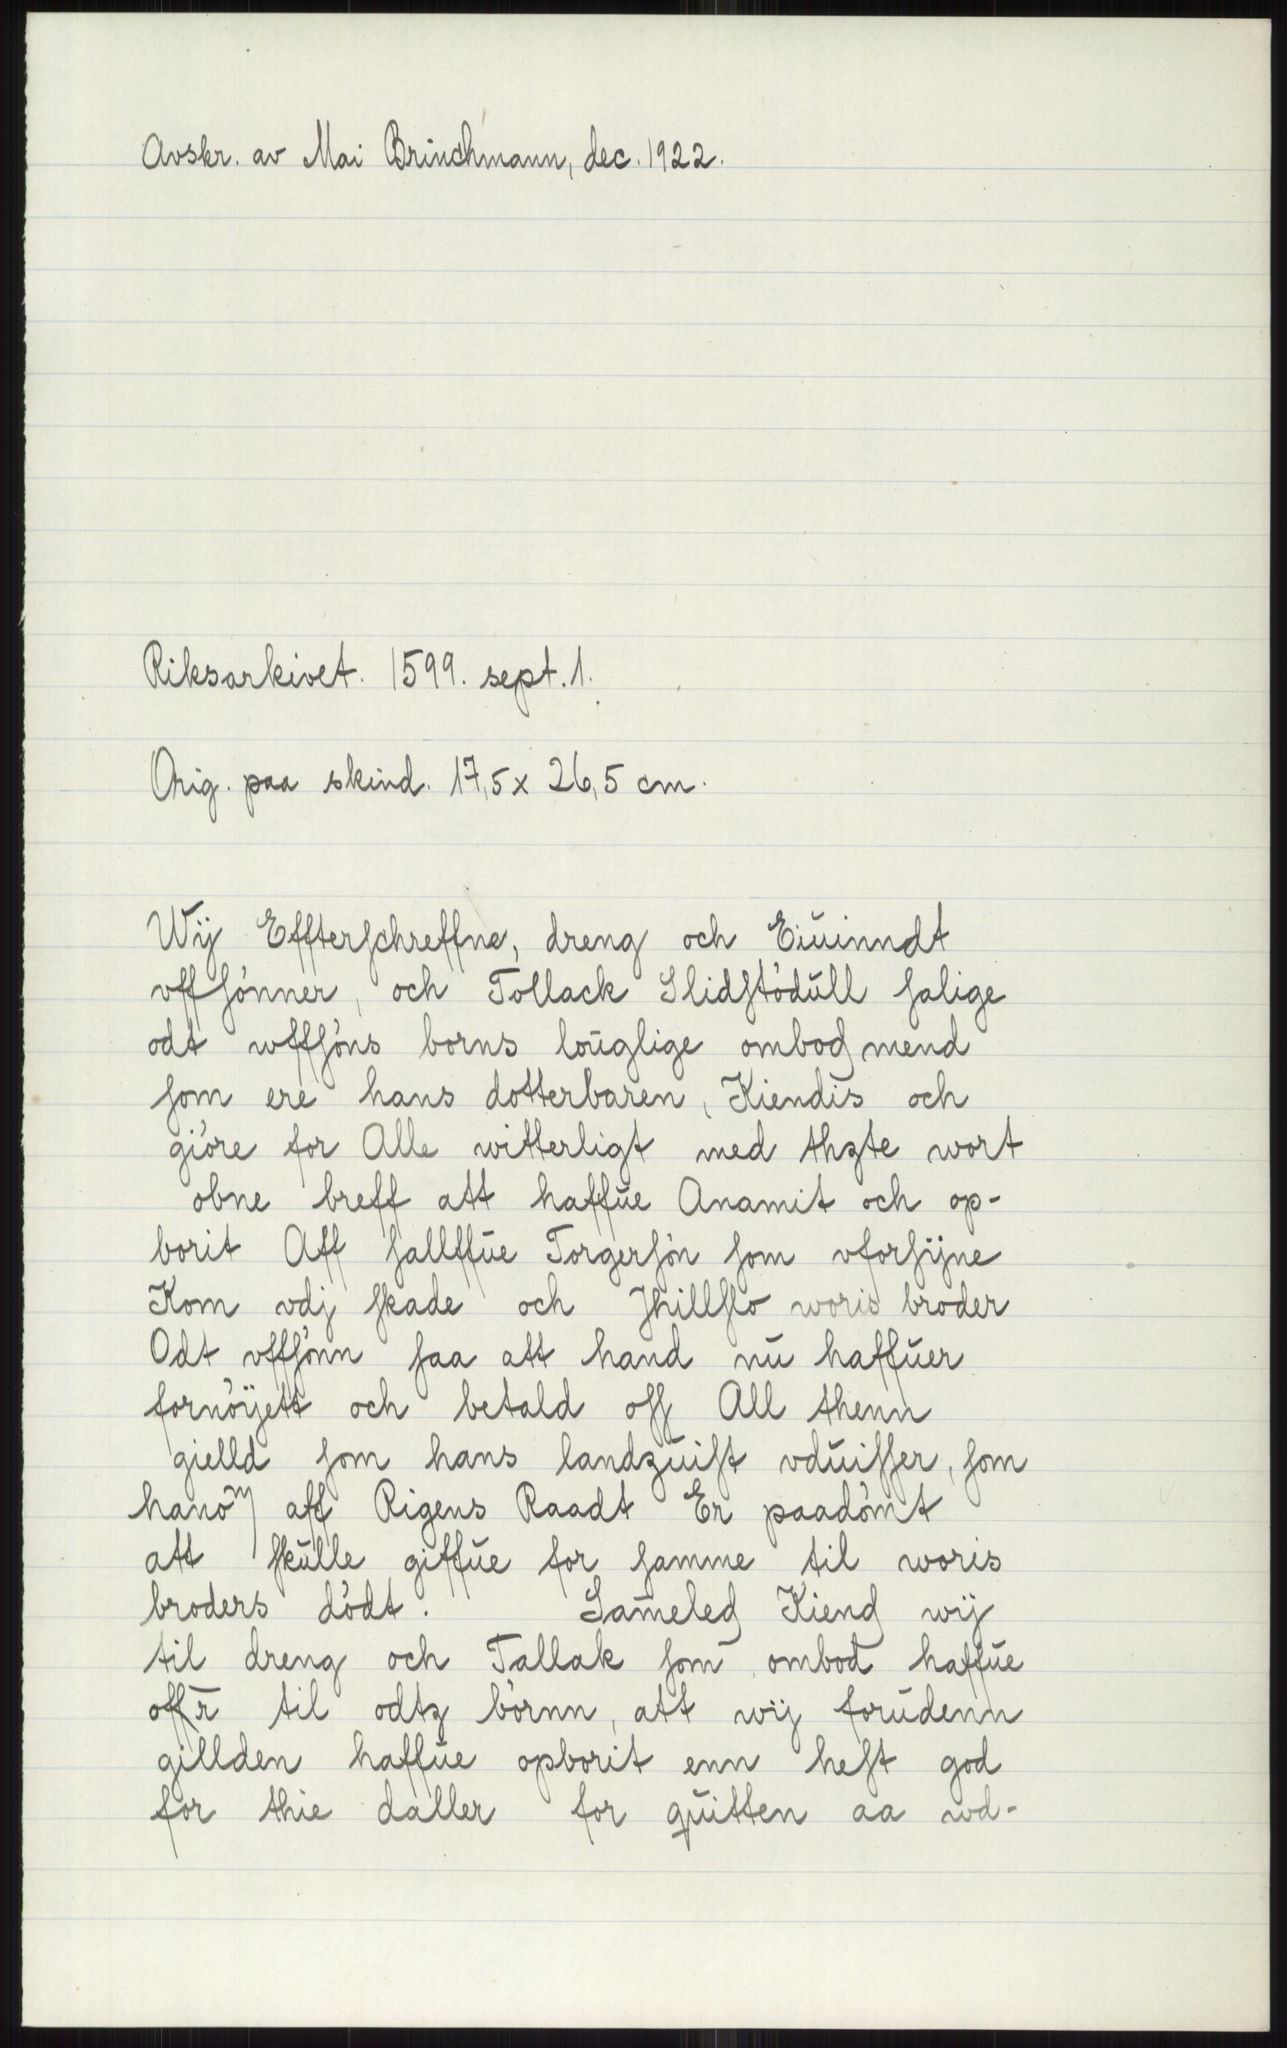 Avskr. av Mai Brinchmann, dec. 1922.
Riksarkivet. 1599. sept. 1.
Orig. paa skind. 17,5 x 26,5 cm.
Wij Effterschreffne, dreng och Eiuinndt
vffsónner, och Tollack Slidstódull salige
odt wffsóns borns louglige ombodz mend
som ere hans dotterbaren, Kiendis och
gióre for Alle witterligt med thzte wort
obne breff att haffue Anamit och op-
borit Aff hallffue Torgersón som vforsijne
Kom vdj skade och Ihillslo woris broder
Odt vffsónn saa att hand nu haffuer
fornóyett och betald off All thenn
gielld som hans landzuist vduisser, som
hanom aff Rigens Raadt Er paadómt
att skulle giffue for samme til woris
broders dódt. Sameledz Kiendz wij
til dreng och Tallak som ombod haffue
offr til odtz bórnn, att wij forudenn
gillden haffue opborit enn hest god
for thie daller for quitten aa wd-